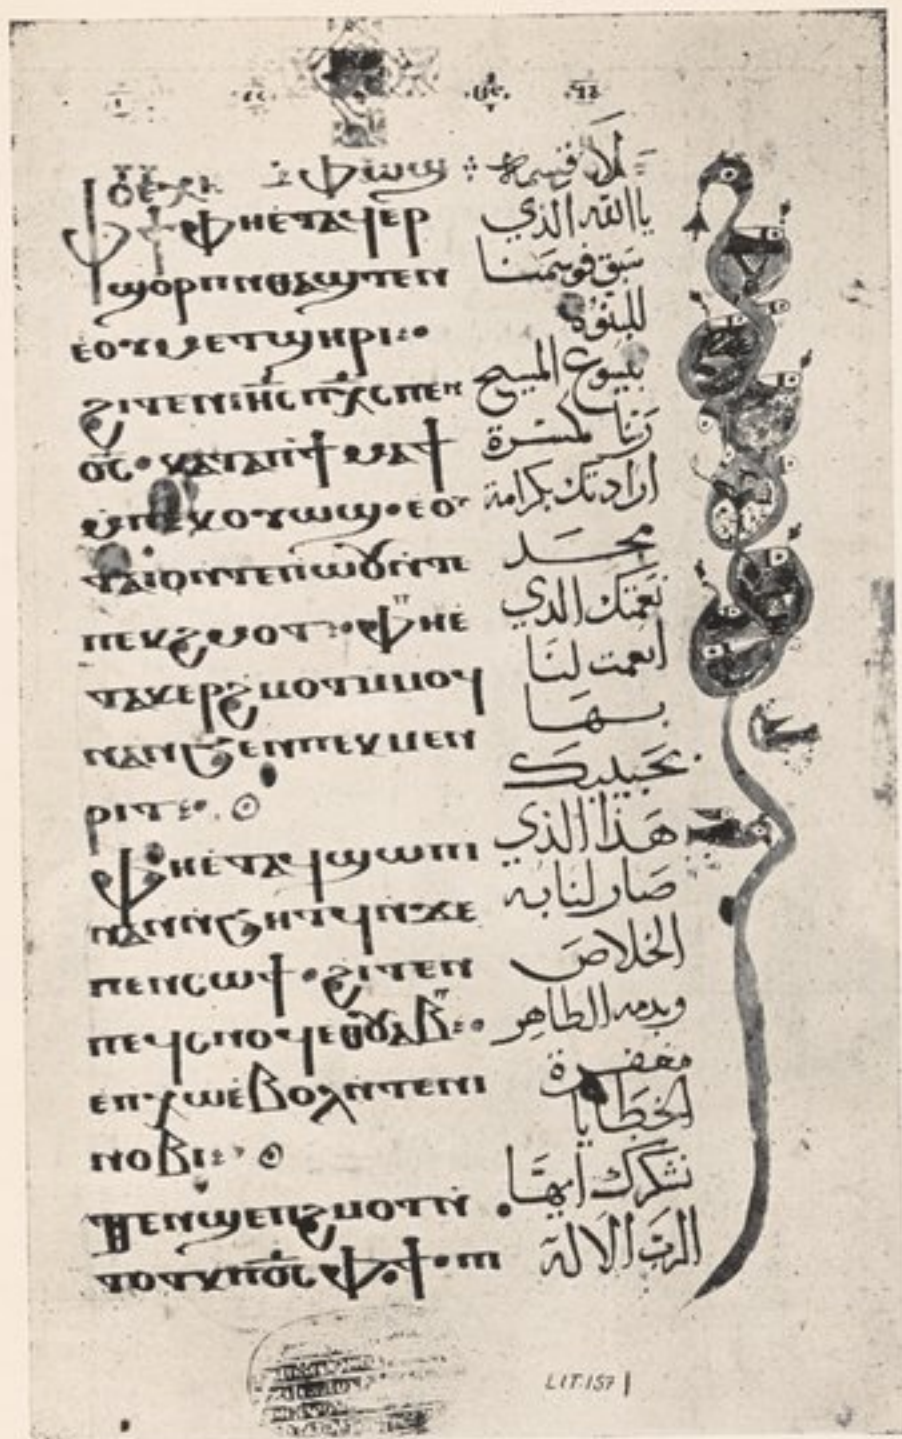 Ⲫϯ ⲫⲏⲉⲧⲁϥⲉⲣ
ϣⲟⲣⲡⲛⲑⲁϣⲧⲉⲛ
ⲉⲟⲩⲙⲉⲧϣⲏⲣⲓ:·
ϩⲓⲧⲉⲛⲓⲏ̅ⲥ̅ⲡⲭ̅ⲥ̅ⲡⲉⲛ
ⲟ̅ⲥ̅·ⲕⲁⲧⲁⲡϯⲙⲁϯ
ⲙⲡⲉⲕⲟⲩⲱϣ·ⲉⲟⲩ
ⲧⲁⲓⲟⲛⲧⲉⲡⲱⲟⲩⲛⲧⲉ
ⲡⲉⲕϩⲙⲟⲧ:·ⲫⲏⲉ
ⲧⲁⲕⲉⲣϩⲙⲟⲧⲙⲙⲟϥ
ⲛⲁⲛϧⲉⲛⲡⲉⲕⲙⲉⲛ
ⲣⲓⲧ:·
Ⲫⲏⲉⲧⲁϥϣⲱⲡⲓ
ⲛⲁⲛⲛϧⲏⲧϥⲛϫⲉ
ⲡⲉⲛⲥⲱϯ·ϩⲓⲧⲉⲛ
ⲡⲉϥⲥⲛⲟϥⲉⲑⲟⲩⲁⲃ:·
ⲉⲡⲭⲱⲉⲃⲟⲗⲛⲧⲉⲛⲓ
ⲛⲟⲃⲓ:·
Ⲧⲉⲛϣⲉⲡϩⲙⲟⲧⲛ
ⲧⲟⲧⲕⲡⲟ̅ⲥ̅ⲫϯ·ⲡ
يا الله الذي
سبق فوسمنا
للبنوة
بيسوع المسيح
ربنا كمسرة
ارادتك بكرامة
مجد
نعمتك الذي
انعمت لنا
بها
بحبيبك
هذا الذي
صار لنا به
الخلاص
وبدمه الطاهر
مغفرة
الخطايا
نشكرك ايها
الرب الاله
LIT.157